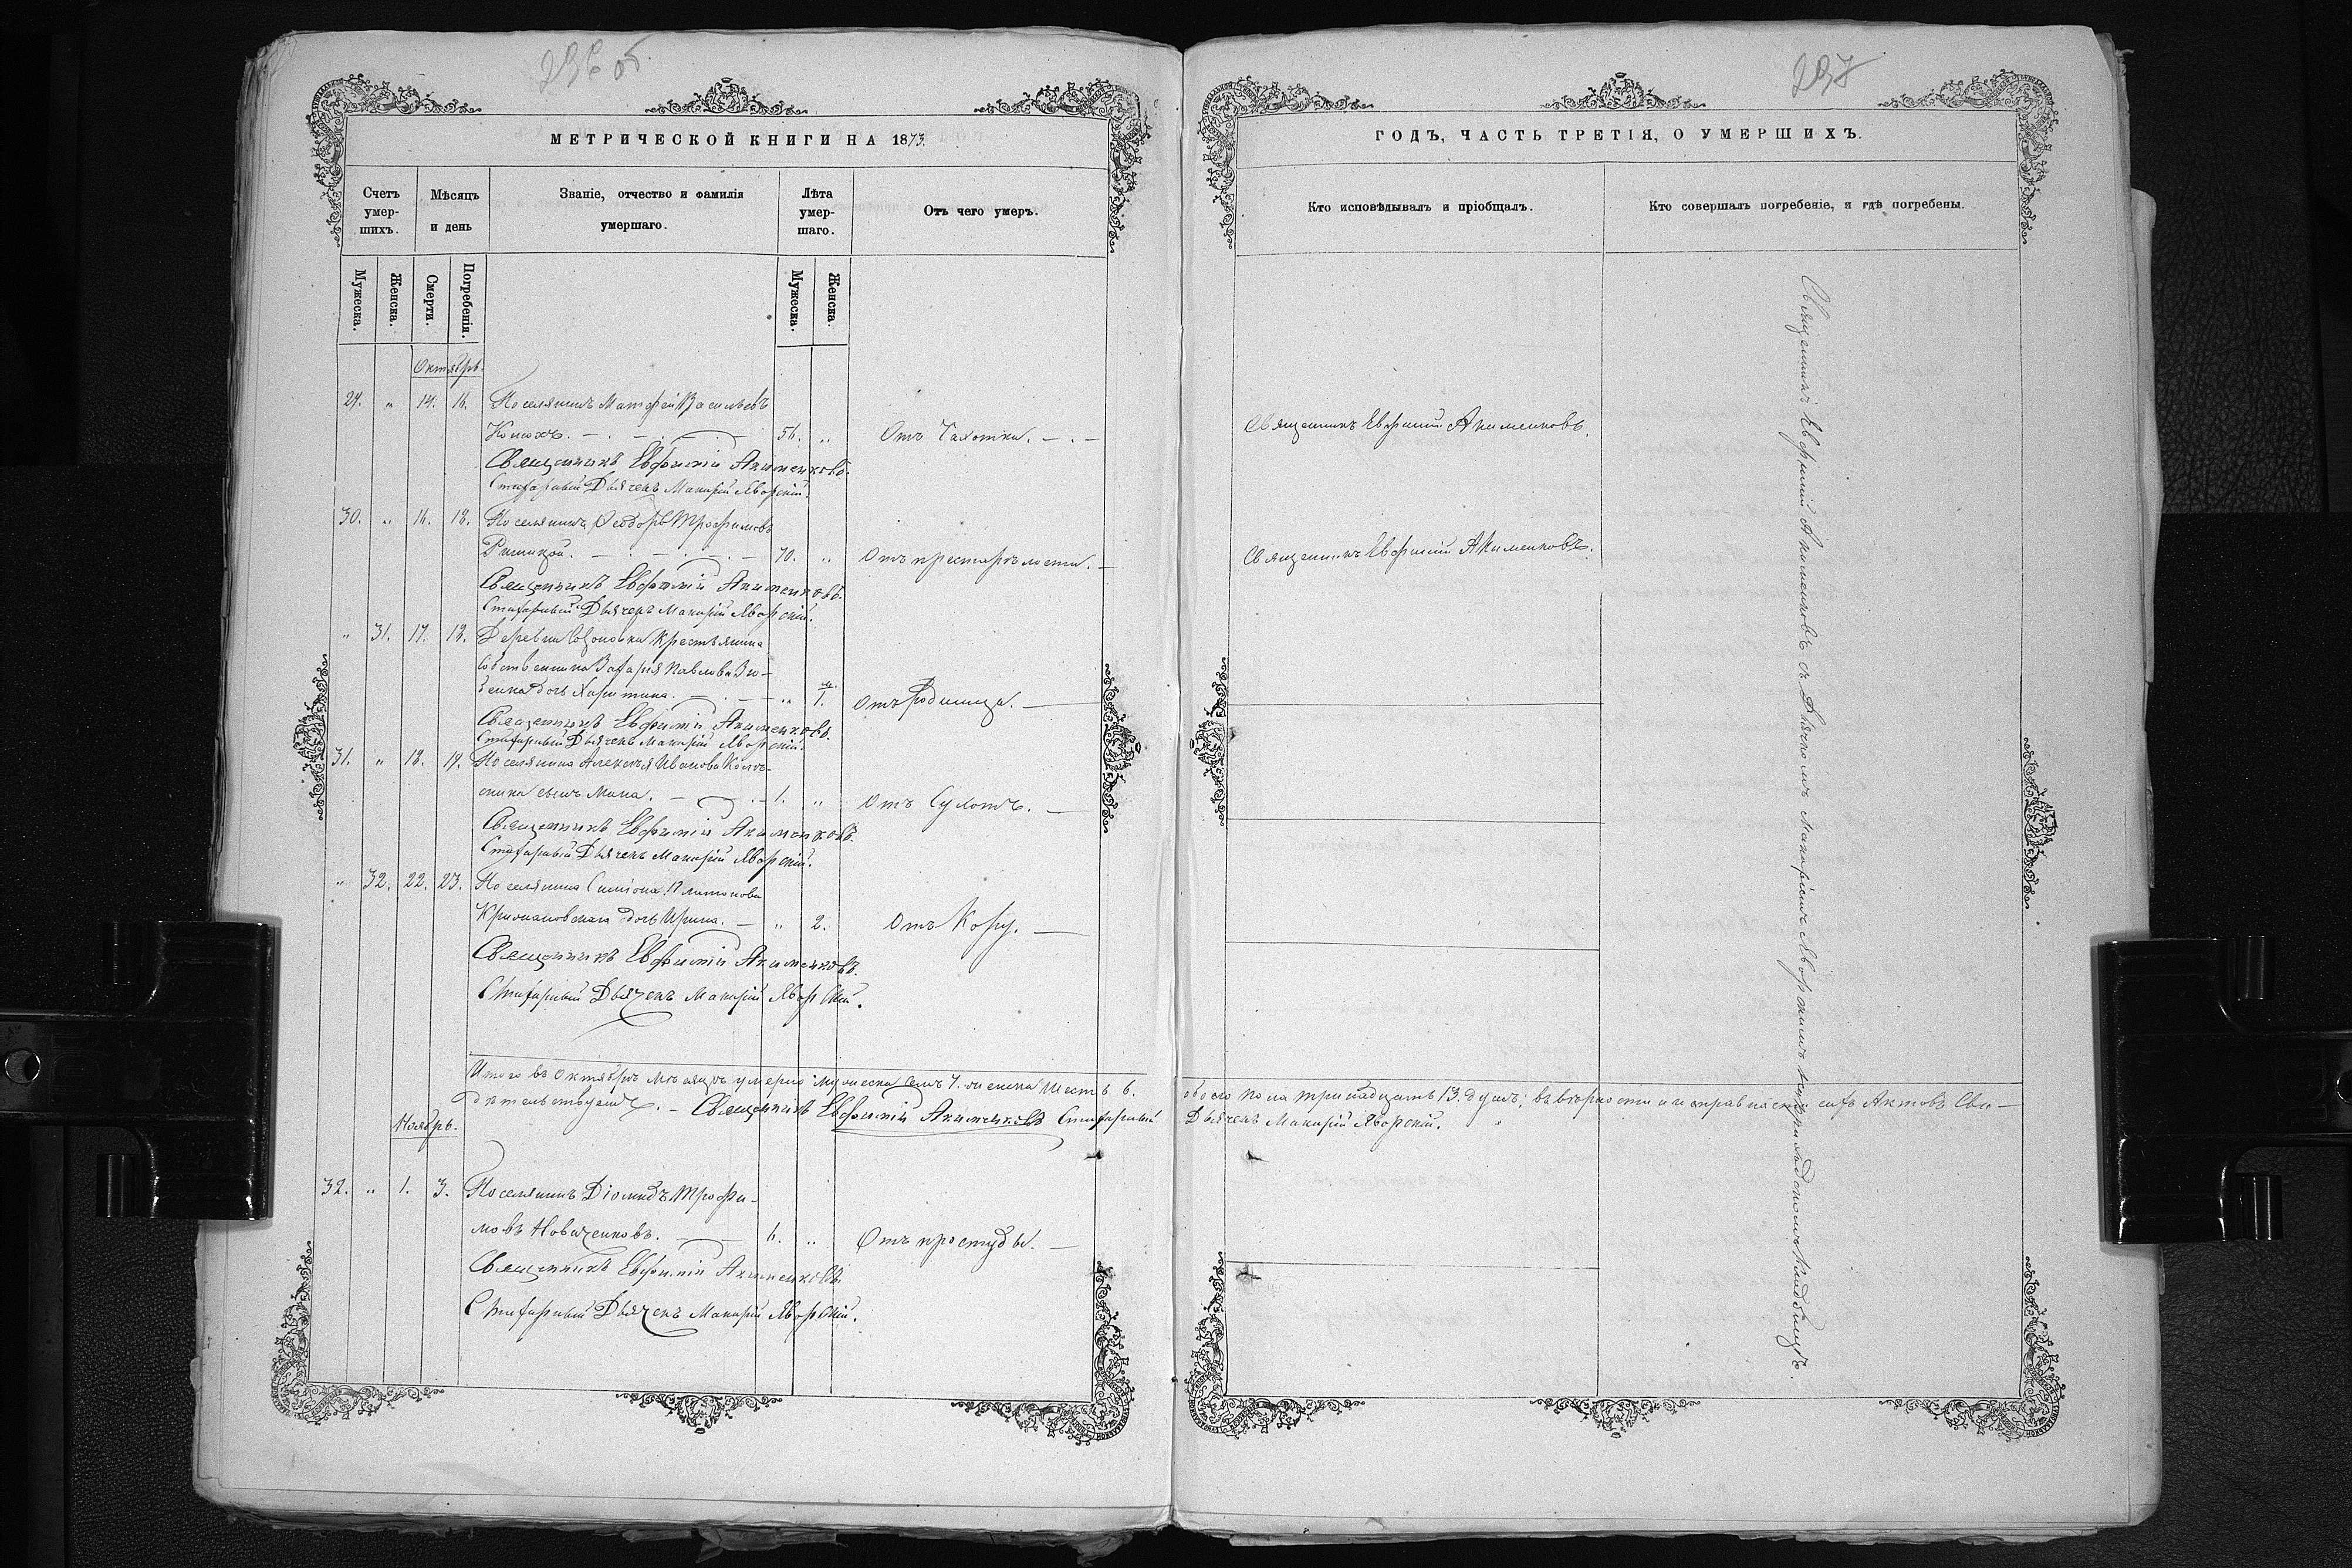 236 об.
МЕТРИЧЕСКОЙ КНИГИ НА 1873.
Счетъ умер-шихъ.
Мѣсяцъ и день
Званіе, отчество и фамилія умершаго.
Лѣта умер-шаго.
Отъ чего умеръ.
Мужеска.
Женска.
Смерти.
Погребенія.
Мужеска.
Женска.
Октябрь.
29. " 14. 16. Поселянинъ Матфей Васильевъ
Конохъ. 56. " Отъ Чахотки.
Священникъ Евфимій Акименковъ.
Стихарный Дьячекъ Макарій Яворскій.
30. " 16. 18. Поселянинъ Ѳеодоръ Трофимовъ
70. " Отъ престарѣлости.
Священникъ Евфимій Акименковъ.
Стихарный Дьячекъ Макарій Яворскій.
" 31. 17. 18. Деревни Крестьянина
Собственника Захарія Павлова Зю-
бенка дочь Харитина. " 1. Отъ родимца.
Священникъ Евфимій Акименковъ.
Стихарный Дьячекъ Макарій Яворскій.
31. " 18. 19. Поселянина Алексѣя Иванова Колѣ-
сника сынъ Мина. 1. " Отъ Сухотъ.
Священникъ Евфимій Акименковъ.
Стихарный Дьячекъ Макарій Яворскій.
" 32. 22. 23. Поселянина Симеона Платонова
дочь Ирина. " 2. Отъ Кору.
Священникъ Евфимій Акименковъ.
Стихарный Дьячекъ Макарій Яворскій.
Итого въ Октябрѣ мѣсяцѣ умерло мужеска семь 7. женска шесть 6.
дѣтельствуемъ. – Священникъ Евфимій Акименковъ Стихарный
Ноябрь.
32. " 1. 3. Поселянинъ Діомидъ Трофи-
мовъ Новиченковъ. 6. " Отъ простуды.
Священникъ Евфимій Акименковъ.
Стихарный Дьячекъ Макарій Яворскій.
237
ГОДЪ, ЧАСТЬ ТРЕТІЯ, О УМЕРШИХЪ.
Кто исповѣдывалъ и пріобщалъ.
Кто совершалъ погребеніе, и гдѣ погребены.
Священникъ Евфимій Акименковъ.
Священникъ Евфимій Акименковъ.
Священникъ Евфимій Акименковъ съ Дьячкомъ Макаріемъ Яворскимъ на приходскомъ кладбищѣ.
обоего пола тринадцать 13. душъ; въ вѣрности и исправности сихъ Актовъ Сви-
Дьячекъ Макарій Яворскій.